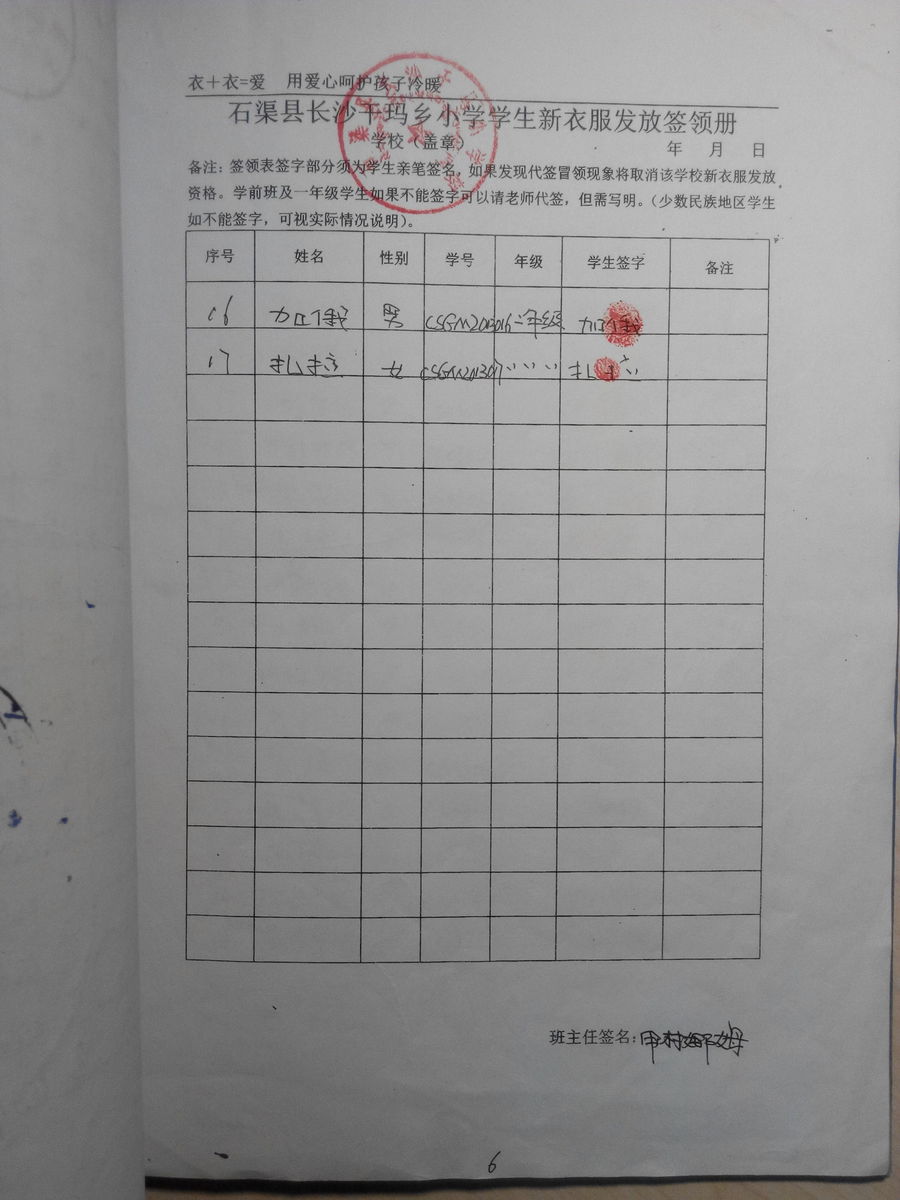 衣＋衣=爱 用爱心呵护孩子冷暖
石渠县长沙干玛乡小学学生新衣服发放签领册
学校（盖章）
年 月 日
备注：签领表签字部分须为学生亲笔签名，如果发现代签冒领现象将取消该学校新衣服发放
资格。学前班及一年级学生如果不能签字可以请老师代签，但需写明。（少数民族地区学生
如不能签字，可视实际情况说明）。
序号 姓名 性别 学号 年级 学生签字 备注
16 加俄 男 CSGM2013016 二年级 加俄
17 扎拉 女 CSGM2013017 〃 〃 〃 扎拉
班主任签名：
6